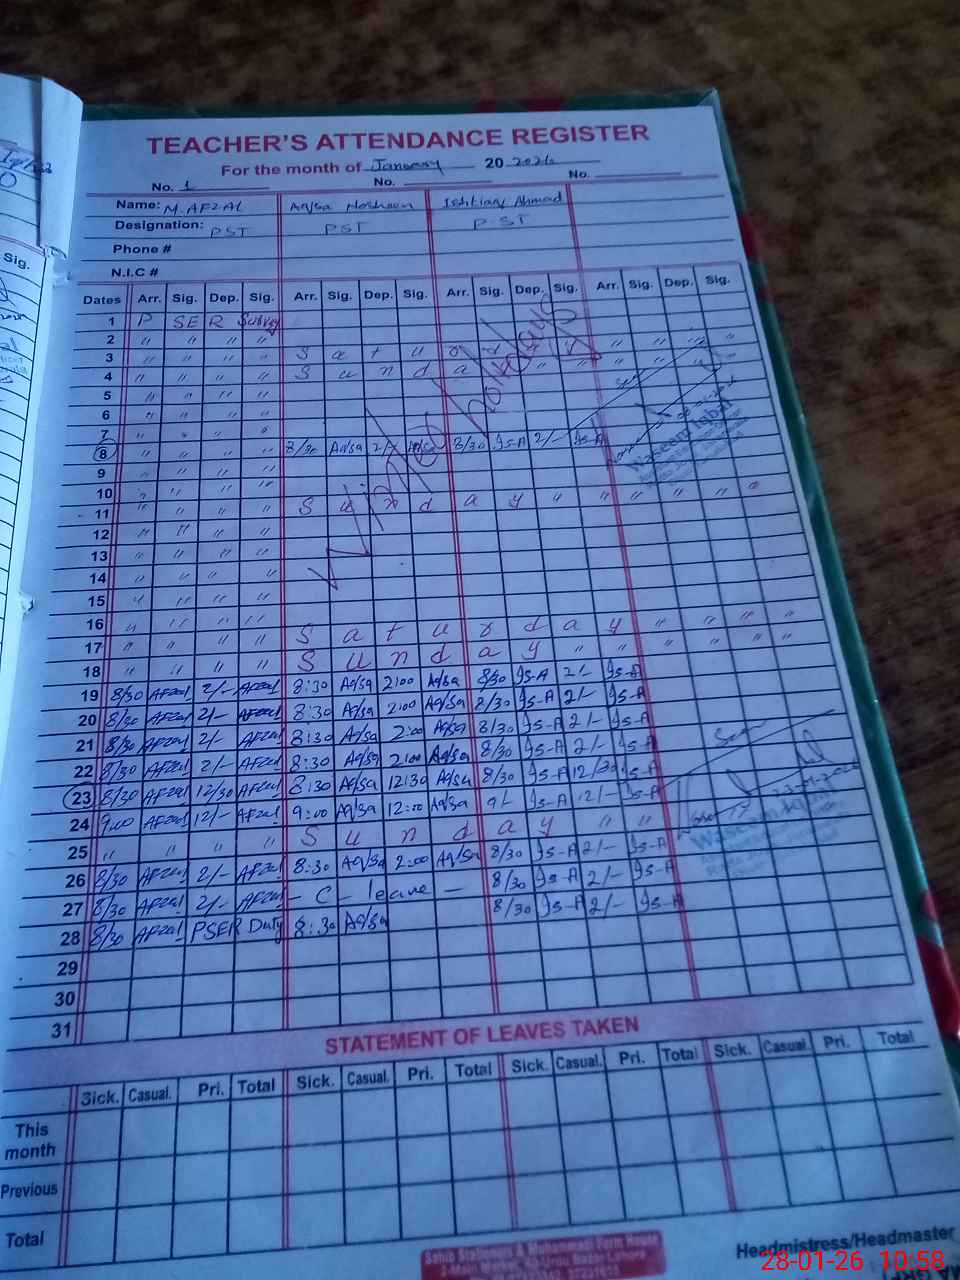 TEACHER'S ATTENDANCE REGISTER
For the month of January 20 2026
No. 1 No. No.
Name: M. AFZAL Aqsa Mosheen Ishtiaq Ahmad
Designation: PST PST P.ST
Phone #
N.I.C #
Dates Arr. Sig. Dep. Sig. Arr. Sig. Dep. Sig. Arr. Sig. Dep. Sig. Arr. Sig. Dep. Sig.
1 P SE R Survey
2 " " " "
3 " " " " S a t u r d a y " " " "
4 " " " " S u n d a y " " " " "
Winter holidays
5 " " " "
6 " " " "
7 " " " "
8 " " " " 8/30 Aqsa 2/- Aqsa 8/30 Is-A 2/- Is-A
Waseem Iqbal
9 " " " "
10 " " " "
11 " " " " S u n d a y " " " " " "
12 " " " "
13 " " " "
14 " " " "
15 " " " "
16 " " " "
17 " " " " S a t u r d a y " " " "
18 " " " " S u n d a y " " " " " "
19 8/30 Afzal 2/- Afzal 8:30 Aqsa 2:00 Aqsa 8/30 Is-A 2/- Is-A
20 8/30 Afzal 2/- Afzal 8:30 Aqsa 2:00 Aqsa 8/30 Is-A 2/- Is-A
21 8/30 Afzal 2/- Afzal 8:30 Aqsa 2:00 Aqsa 8/30 Is-A 2/- Is-A
22 8/30 Afzal 2/- Afzal 8:30 Aqsa 2:00 Aqsa 8/30 Is-A 2/- Is-A
23 8/30 Afzal 12/30 Afzal 8:30 Aqsa 12:30 Aqsa 8/30 Is-A 12/30 Is-A
Waseem Iqbal
24 9:00 Afzal 12/- Afzal 9:00 Aqsa 12:00 Aqsa 9/- Is-A 12/- Is-A
25 " " " " S u n d a y " "
26 8/30 Afzal 2/- Afzal 8:30 Aqsa 2:00 Aqsa 8/30 Is-A 2/- Is-A
27 8/30 Afzal 2/- Afzal - C - leave - 8/30 Is-A 2/- Is-A
28 8/30 Afzal PSER Duty 8:30 Aqsa 8/30 Is-A 2/- Is-A
29
30
31
STATEMENT OF LEAVES TAKEN
Sick. Casual. Pri. Total Sick. Casual. Pri. Total Sick. Casual. Pri. Total Sick. Casual. Pri. Total
This month
Previous
Total
Headmistress/Headmaster
28-01-26 10:58
Sig.